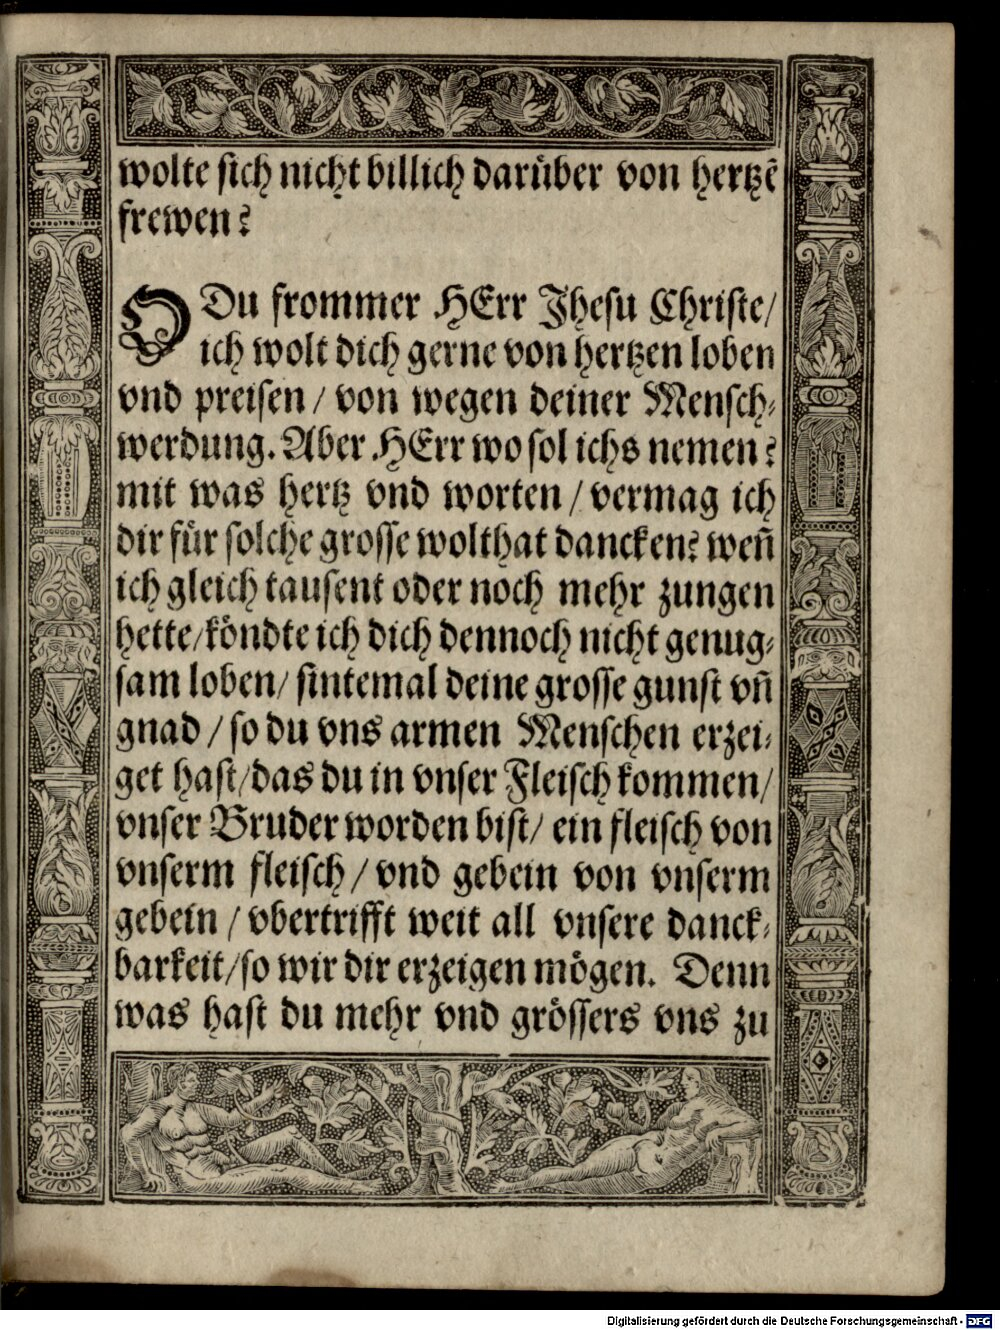 wolte sich nicht billich darüber von hertzẽ
frewen?
O Du frommer HErr Jhesu Christe/
ich wolt dich gerne von hertzen loben
vnd preisen / von wegen deiner Mensch⸗
werdung. Aber HErr wo sol ichs nemen?
mit was hertz vnd worten / vermag ich
dir für solche grosse wolthat dancken? weñ
ich gleich tausent oder noch mehr zungen
hette/köndte ich dich dennoch nicht genug⸗
sam loben/ sintemal deine grosse gunst vñ
gnad / so du vns armen Menschen erzei⸗
get hast/das du in vnser Fleisch kommen/
vnser Bruder worden bist/ ein fleisch von
vnserm fleisch / vnd gebein von vnserm
gebein / vbertrifft weit all vnsere danck⸗
barkeit/so wir dir erzeigen mögen. Denn
was hast du mehr vnd grössers vns zu
Digitalisierung gefördert durch die Deutsche Forschungsgemeinschaft - DFG